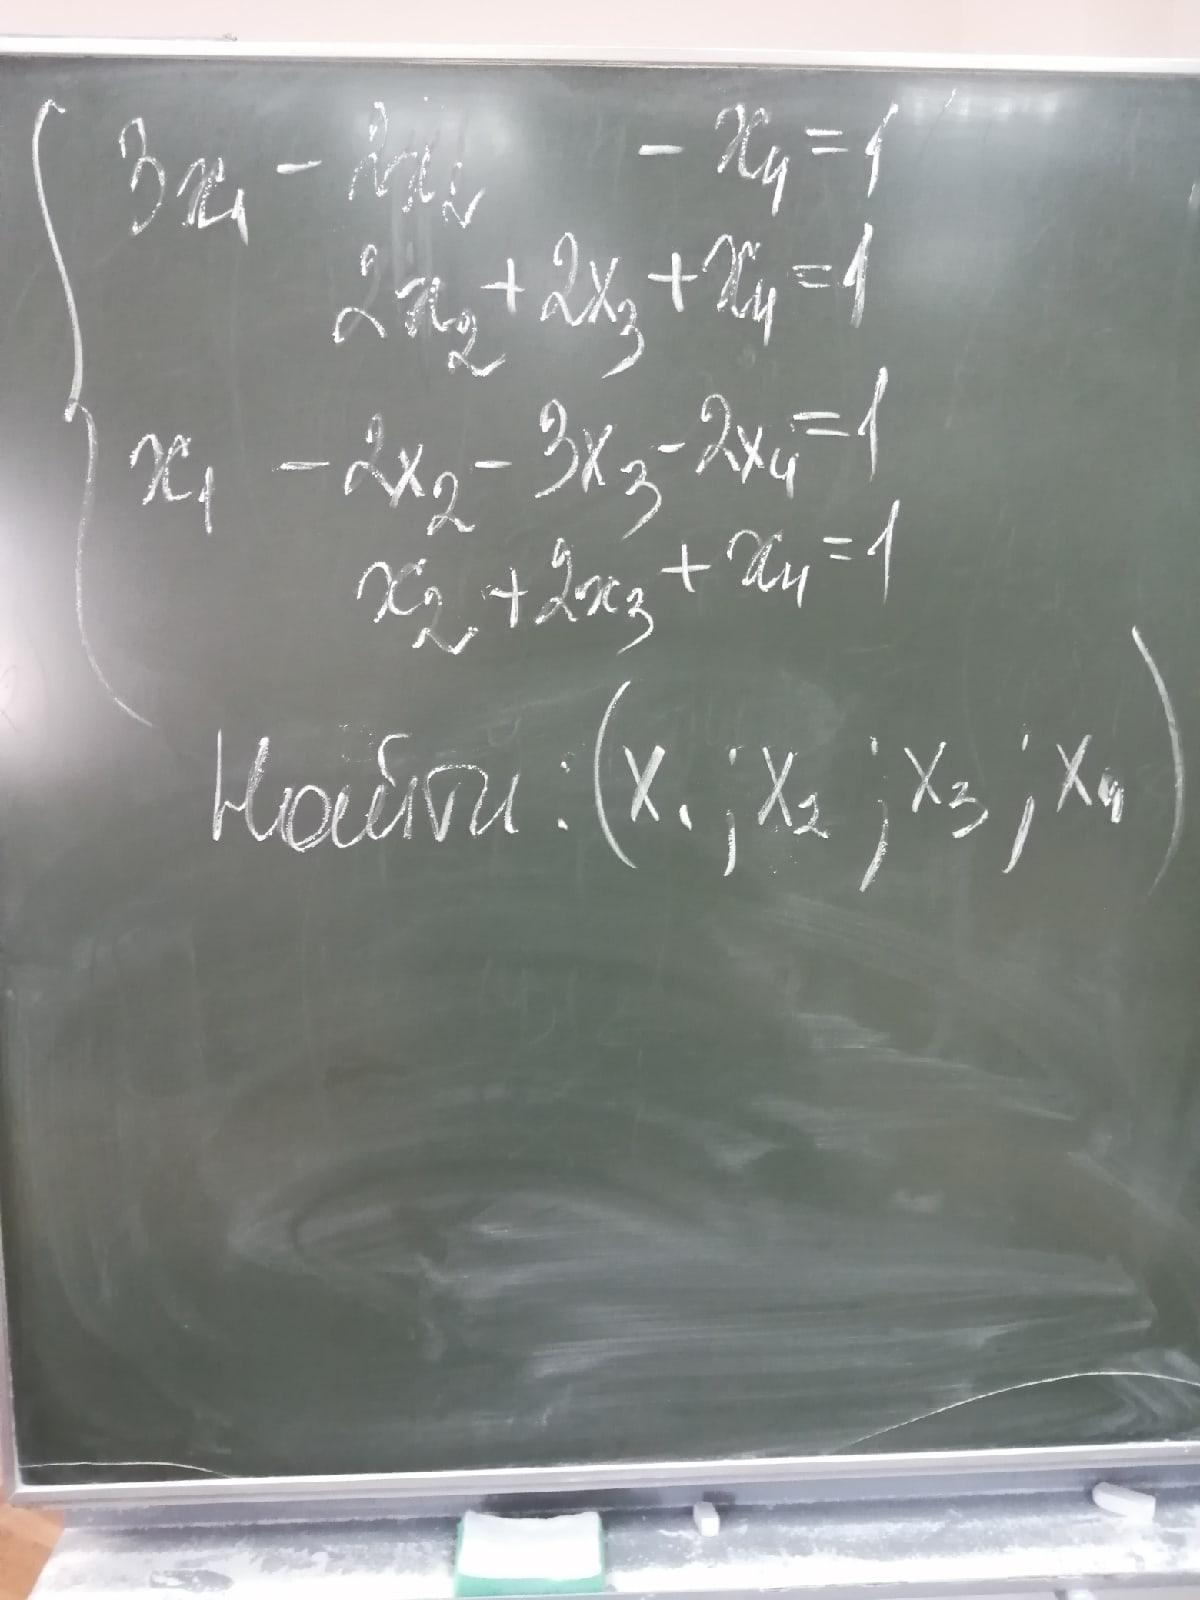 3x₁ - 2x₂ - x₄ = 1
2x₂ + 2x₃ + x₄ = 1
x₁ - 2x₂ - 3x₃ - 2x₄ = 1
x₂ + 2x₃ + x₄ = 1
Найти: (x₁; x₂; x₃; x₄)